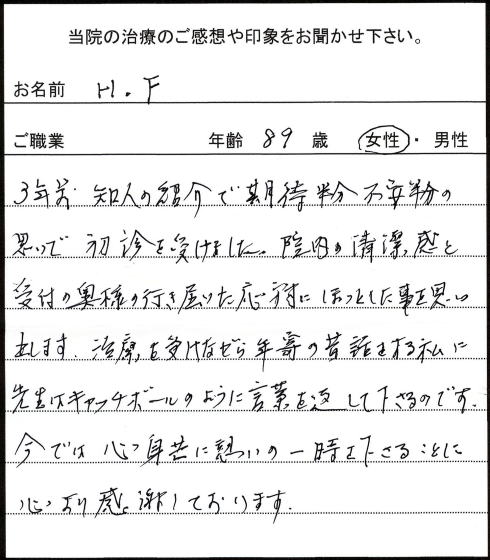 当院の治療のご感想や印象をお聞かせ下さい。
お名前 H.F
ご職業 年齢 89 歳 女性・男性
3年前 知人の紹介で期待半分 不安半分の
思いで 初診を受けました。院内の清潔感と
受付の奥様の行き届いた応対にほっとした事を思い
出します。治療を受けながら年寄の昔話をする私に
先生はキャッチボールのように言葉を返して下さるのです。
今では 心身共に憩いの一時を下さることに
心より感謝しております。